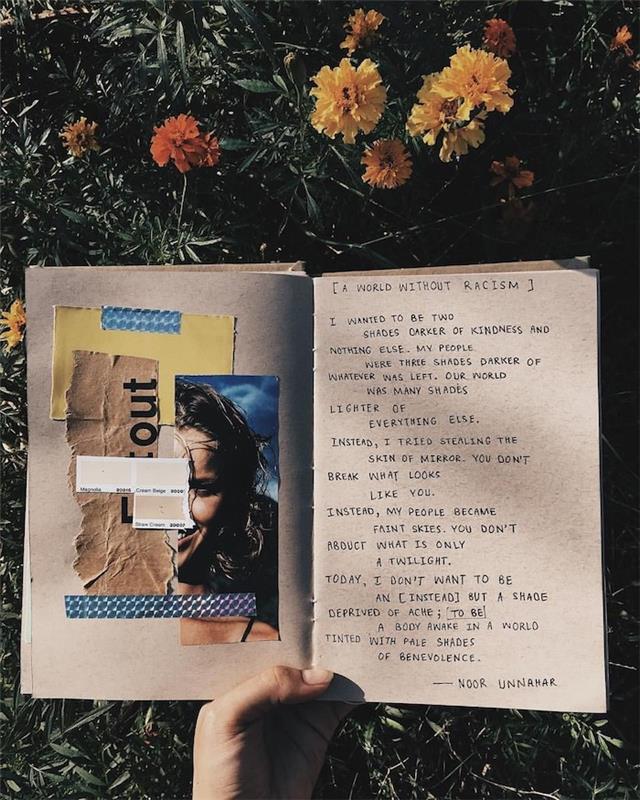 tout
Magnolia 20015 Cream Beige
Straw Cream
[ A WORLD WITHOUT RACISM ]
I WANTED TO BE TWO
SHADES DARKER OF KINDNESS AND
NOTHING ELSE. MY PEOPLE
WERE THREE SHADES DARKER OF
WHATEVER WAS LEFT. OUR WORLD
WAS MANY SHADES
LIGHTER OF
EVERYTHING ELSE.
INSTEAD, I TRIED STEALING THE
SKIN OF MIRROR. YOU DON'T
BREAK WHAT LOOKS
LIKE YOU.
INSTEAD, MY PEOPLE BECAME
FAINT SKIES. YOU DON'T
ABDUCT WHAT IS ONLY
A TWILIGHT.
TODAY, I DON'T WANT TO BE
AN [INSTEAD] BUT A SHADE
DEPRIVED OF ACHE; [TO BE]
A BODY AWAKE IN A WORLD
TINTED WITH PALE SHADES
OF BENEVOLENCE.
— NOOR UNNAHAR